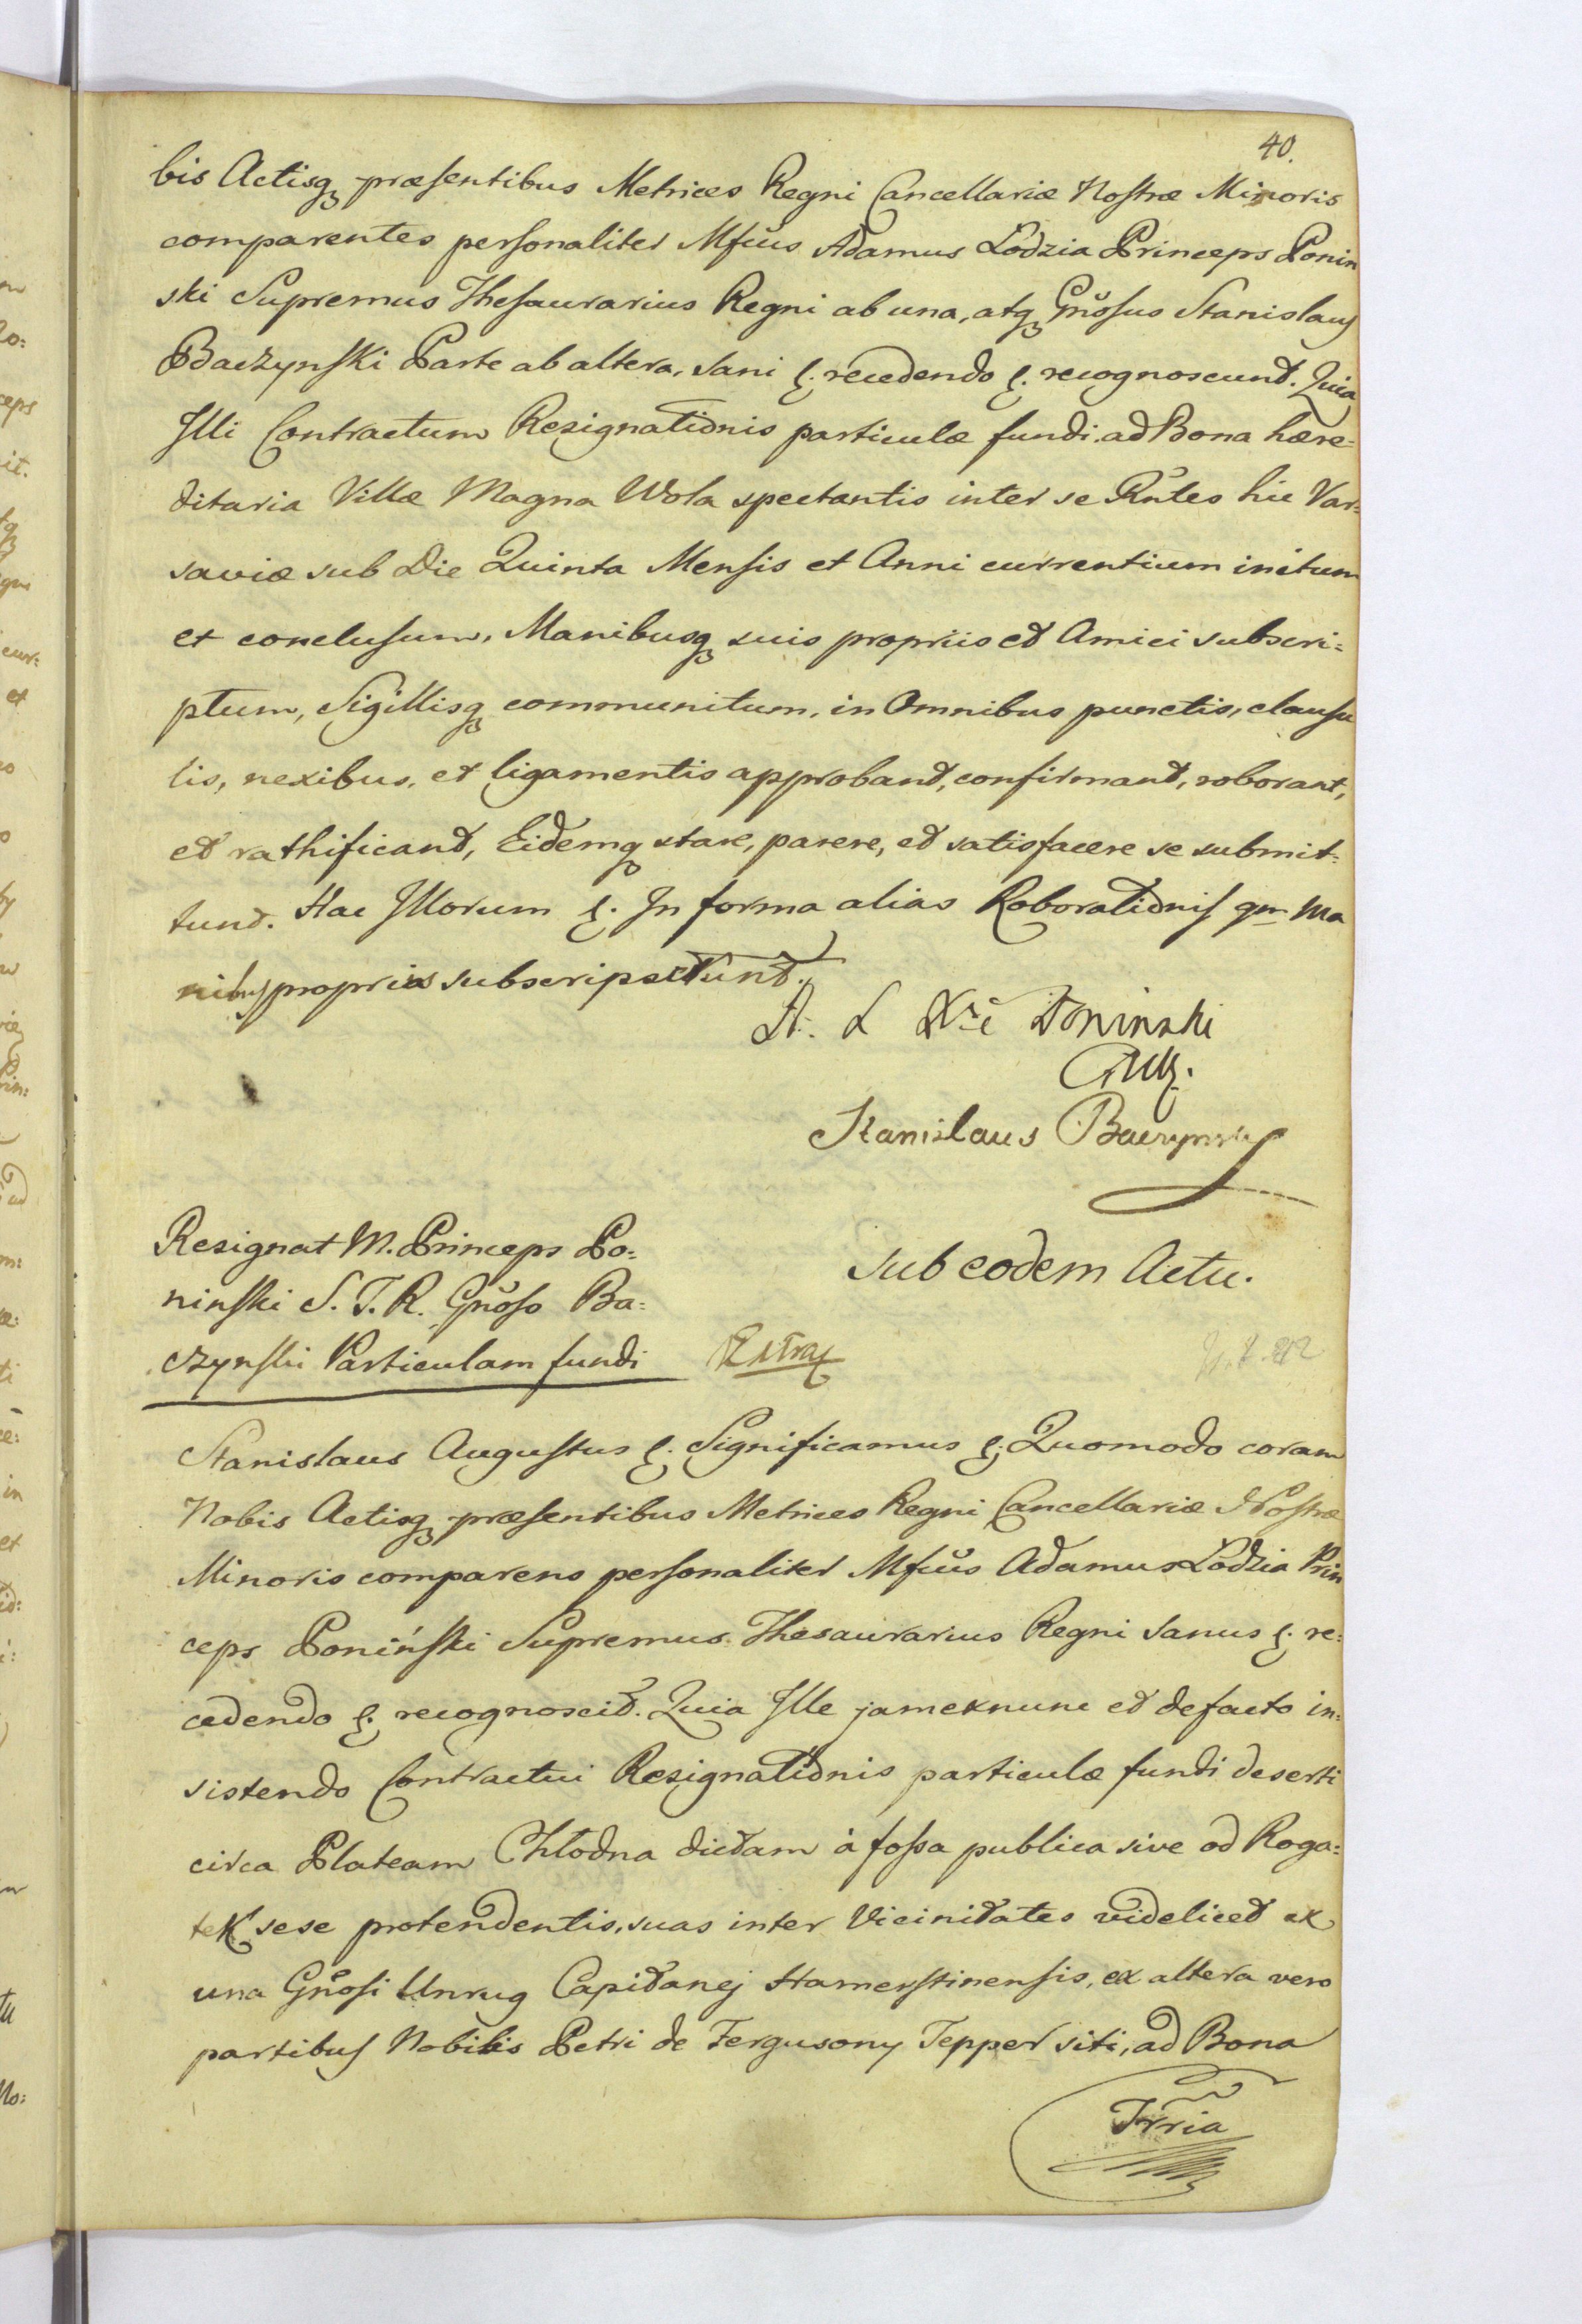 40.
bis Actisq præsentibus Metrices Regni Cancellariæ Nostræ Minoris
comparentes personaliter Mfcus Adamus Łodzia Princeps Ponin
ski Supremus Thesaurarius Regni ab una, atq Gnosus Stanislaus
Baczynski Parte ab altera, sani &. recedendo &. recognoscunt. Quia
Illi Contractum Resignationis particulæ fundi ad Bona hære-
ditaria Villæ Magna Wola spectantis inter se Rntes hic Var-
saviæ sub Die Quinta Mensis et Anni currentium initum
et conclusum, Manibusq suis propriis et Amici subscri-
ptum, Sigillisq communitum, in Omnibus punctis, clausu
lis, nexibus, et ligamentis approbant, confirmant, roborant,
et rathificant, Eidemq stare, parere, et satisfacere se submit-
tunt. Hac Illorum &. In forma alias Roborationis qm Ma
nibus propriis subscripserunt.
A. Ł Xże Poninski
Stanislaus Baczynski
Resignat M. Princeps Po-
ninski S. T. R. Gnoso Ba-
czynski Particulam fundi
Sub eodem Actu.
Extrax
Stanislaus Augustus &. Significamus &. Quomodo coram
Nobis Actisq præsentibus Metrices Regni Cancellariæ Nostræ
Minoris comparens personaliter Mfcus Adamus Łodzia Prin
ceps Poniński Supremus Thesaurarius Regni sanus &. re-
cedendo &. recognoscit. Quia Ille jamexnunc et defacto in-
sistendo Contractui Resignationis particulæ fundi deserti
circa Plateam Chłodna dictam à fossa publica sive od Roga-
tek sese protendentis, suas inter Vicinitates videlicet ex
una Gnosi Unrug Capitanej Hamerstinensis, ex altera vero
partibus Nobilis Petri de Fergusony Tepper siti, ad Bona
Hrria